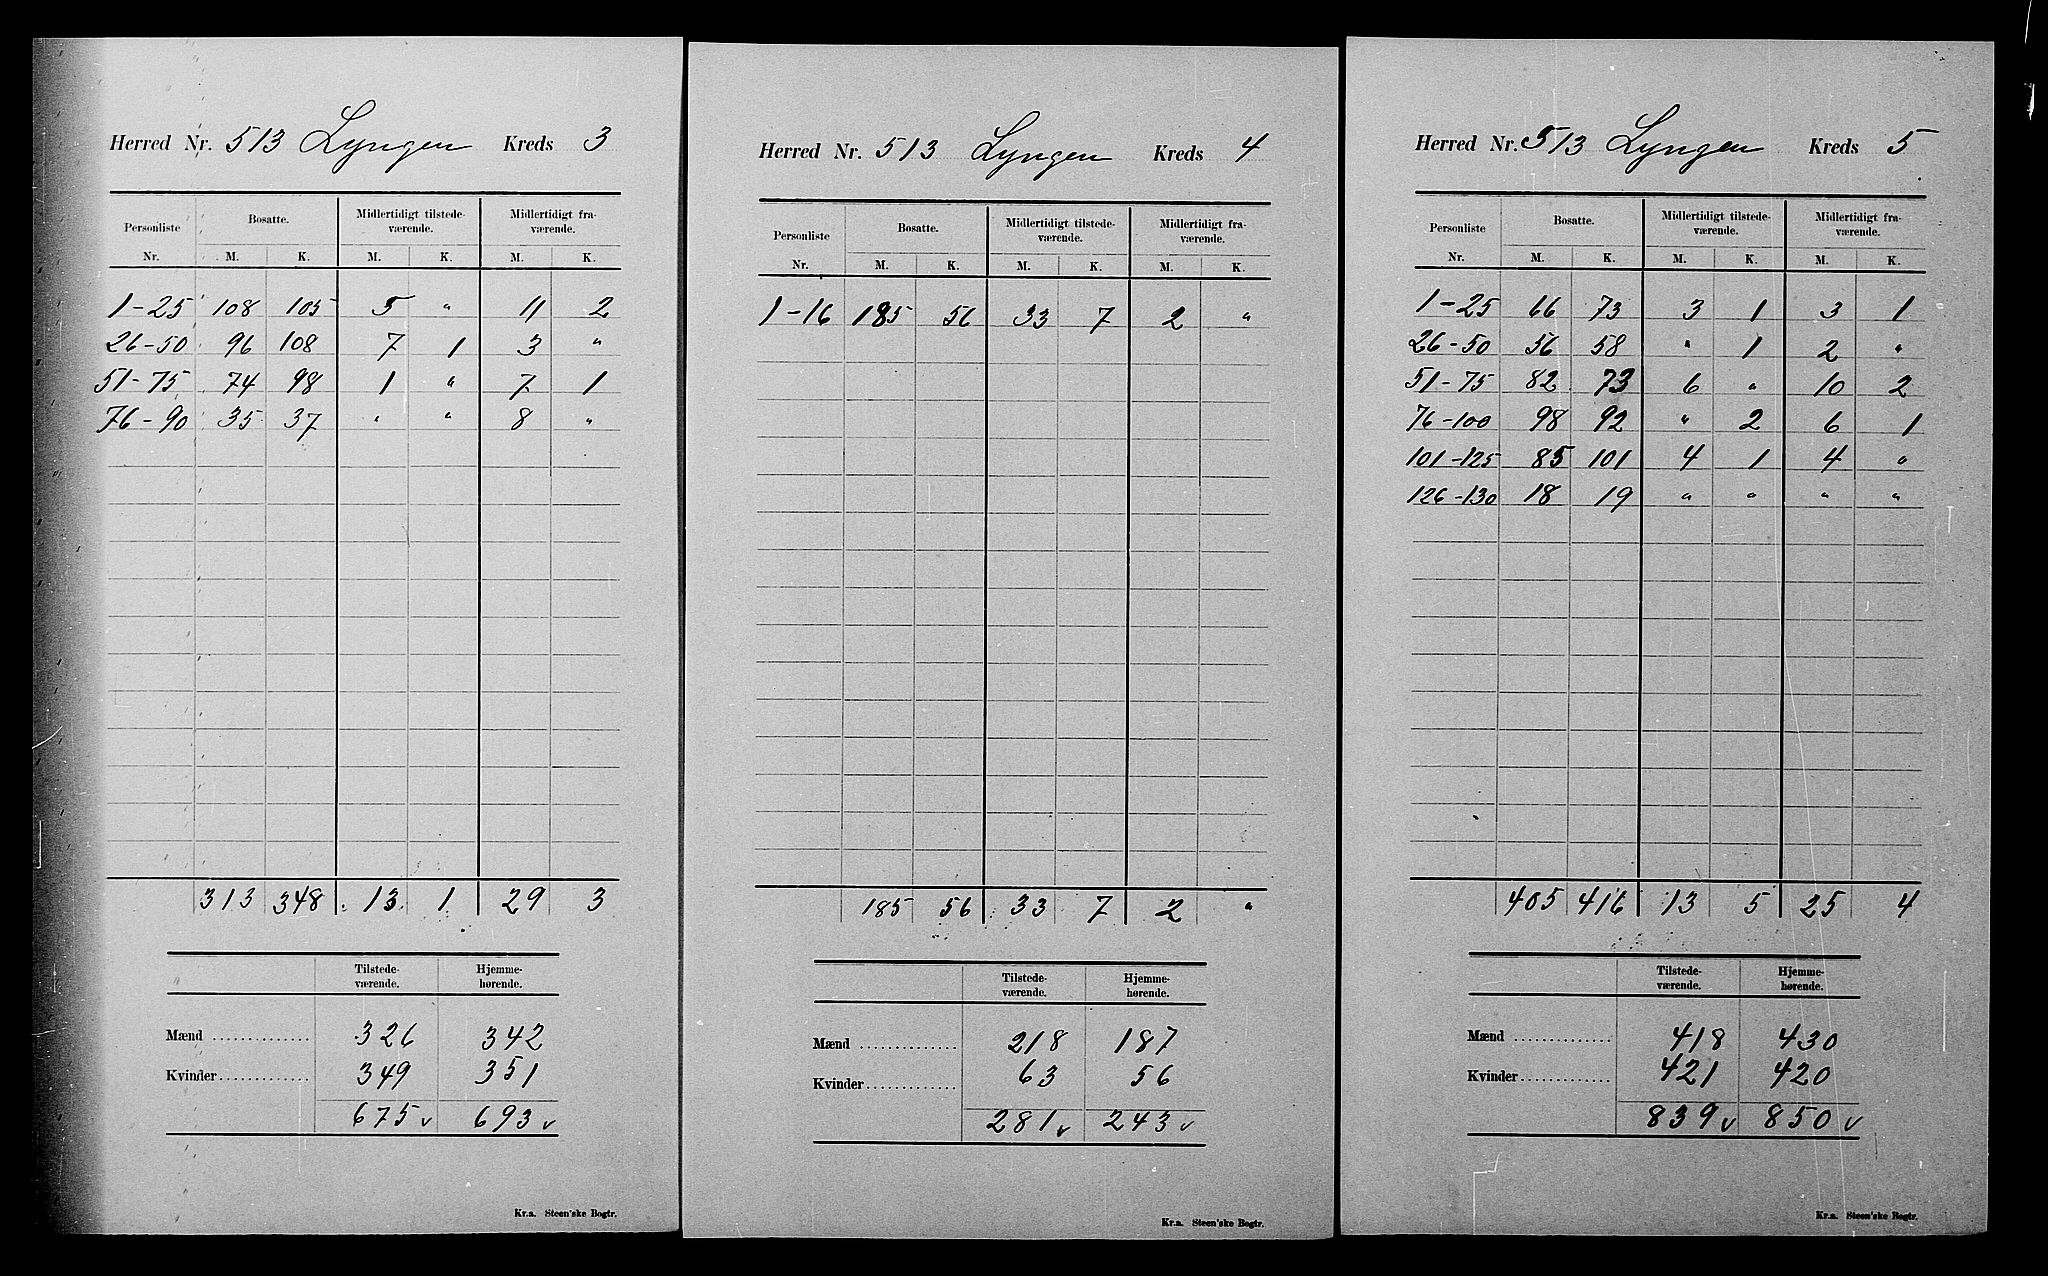 Herred Nr. 513 Lyngen Kreds 3
Personliste Bosatte. Midlertidigt tilstede- Midlertidigt fra-
værende. værende.
Nr. M. K. M. K. M. K.
1-25 108 105 5 " 11 2
26-50 96 108 7 1 3 "
51-75 74 98 1 " 7 1
76-90 35 37 " " 8 "
313 348 13 1 29 3
Tilstede- Hjemme-
værende. hørende.
Mænd 326 342
Kvinder 349 351
675 v 693 v
Kr.a. Steen'ske Bogtr.
Herred Nr. 513 Lyngen Kreds 4
Personliste Bosatte. Midlertidigt tilstede- Midlertidigt fra-
værende. værende.
Nr. M. K. M. K. M. K.
1-16 185 56 33 7 2 "
185 56 33 7 2 "
Tilstede- Hjemme-
værende. hørende.
Mænd 218 187
Kvinder 63 56
281 v 243 v
Kr.a. Steen'ske Bogtr.
Herred Nr. 513 Lyngen Kreds 5
Personliste Bosatte. Midlertidigt tilstede- Midlertidigt fra-
værende. værende.
Nr. M. K. M. K. M. K.
1-25 66 73 3 1 3 1
26-50 56 58 " 1 2 "
51-75 82 73 6 " 10 2
76-100 98 92 " 2 6 1
101-125 85 101 4 1 4 "
126-130 18 19 " " " "
405 416 13 5 25 4
Tilstede- Hjemme-
værende. hørende.
Mænd 418 430
Kvinder 421 420
839 v 850 v
Kr.a. Steen'ske Bogtr.